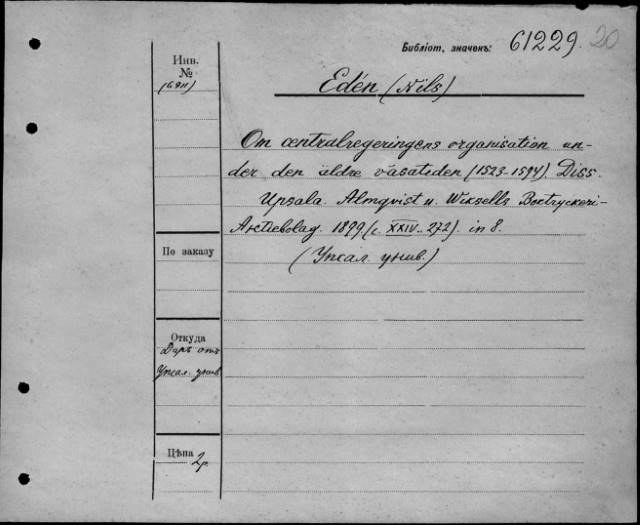 Библіот. значенъ: 61229. 20
Инв.
№
(6911)
Edén (Nils)
Om centralregeringens organisation un-
der den äldre vasatiden (1523-1594). Diss.
Upsala. Almqvist u. Wiksells Boktryckeri-
Aktiebolag. 1899. (с. XXIV-272). in 8.
(Упсал. унив.)
По заказу
Откуда
Даръ отъ
Упсал. унив.
Цѣна 2р.